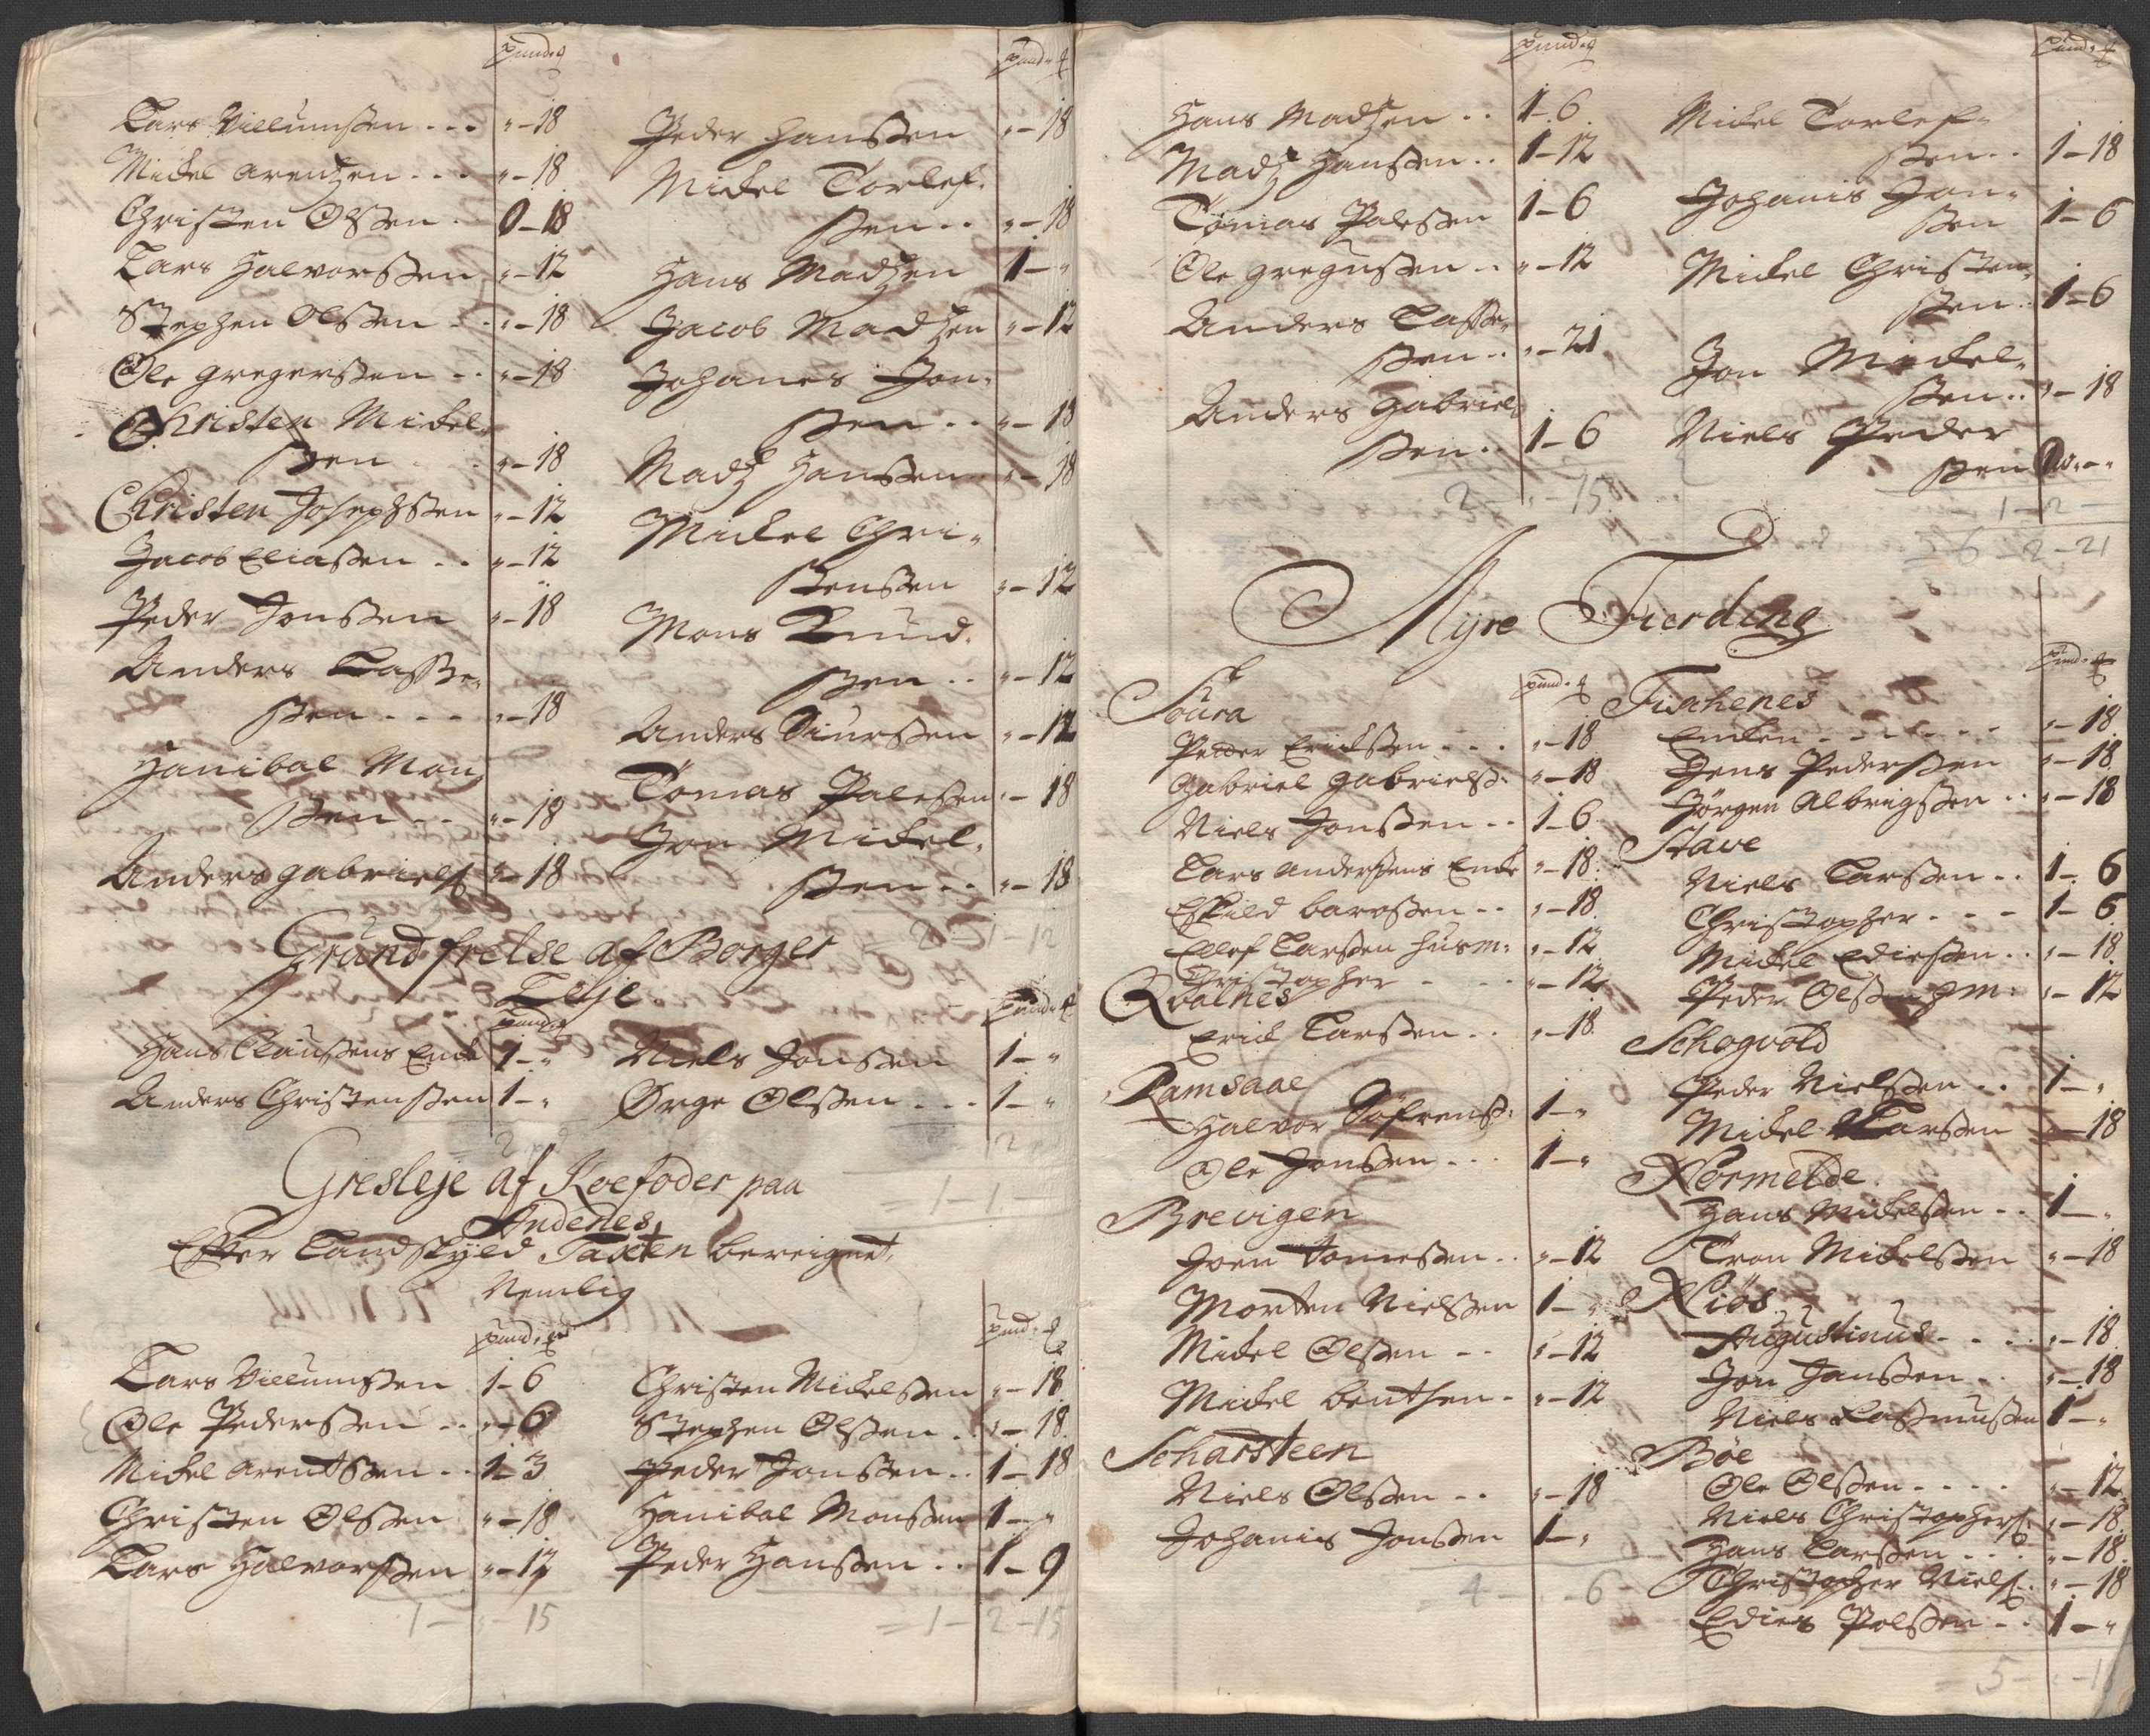 pund ₰
Lars Villumsen . . . „ – 18
Mickel Arentzen . . . „ – 18
Christen Olsen . 0 – 18
Lars Halvorssen „ – 12
Stephen Olssen . . „ – 18
Ole Gregerssen . . „ – 18
Christen Mickel=
ssen . . . „ – 18
Christen Josephssen „ – 12
Jacob Eliassen . . „ – 12
Peder Jonssen „ – 18
Anders Lasse=
ssen . . . „ – 18
Hanibal Mon=
ssen . . „ – 18
Anders Gabriels „ – 18
pund „ ₰
Peder Hanssen „ – 18
Mickel Torlef=
ssen . . „ – 18
Hans Madzen 1 – „
Jacob Madzen „ – 12
Johanes Jon=
ssen . . „ – 18
Madz Hanssen „ – 18
Mickel Chri=
stenssen „ – 12
Mons Knud=
ssen . . „ – 12
Anders Siurssen „ – 12
Tomas Palessen „ – 18
Jon Mickel=
ssen . . „ – 18
= 2 – 1 – 12
Grundfrelse af Borger
Leje
pund ₰
Hans Claussens Enke 1 – „
Anders Christenssen 1 – „
pund „ ₰
Niels Jonssen 1 – „
Ørge Olssen . . . 1 – „
2
12
Gresleje af Koefoder paa
= 1 – 1 –
Andenes
Efter Landskyld Taxten bereignet,
Nemlig
pund „ ₰
Lars Villumssen 1 – 6
Ole Pederssen . . „ – 6
Mickel Arentssen . . 1 – 3
Christen Olssen „ – 18
Lars Halvorssen „ – 12
1 – „ – 15
pund „ ₰
Christen Mickelssen „ – 18
Stephen Olssen . . „ – 18
Peder Jonssen . . 1 – 18
Hanibal Monssen 1 – „
Peder Hanssen . . 1 – 9
= 1 – 2 – 15
pund ₰
Hans Madzen . . 1 – 6
Madz Hanssen . . 1 – 12
Tomas Palessen 1 – 6
Ole Gregussen . . „ – 12
Anders Lasse=
ssen . . „ – 21
Anders Gabriel=
ssen . . 1 – 6
2 – „ – 15
pund „ ₰
Mickel Torlef=
ssen . . 1 – 18
Johanis Jon=
ssen 1 – 6
Mickel Christen=
ssen . . 1 – 6
Jon Mickel=
ssen . . „ – 18
Niels Peder
ssen
1 – 2 –
6 – 2 – 21
Myre Fierding
pund „ ₰
Soura
Peder Erickssen . . . „ – 18
Gabriel Gabrielss: „ – 18
Niels Jonssen . . 1 – 6
Lars Anderssens Enke „ – 18
Eskild Barossen . . „ – 18
Ellef Larssen husm: „ – 12
Christopher . . . „ – 12
Qualnes
Erick Larssen . . „ – 18
Ramsaae
Halvor Søfrenss: 1 – „
Ole Jonssen . . . 1 – „
Brevigen
Iven Tomessen . . „ – 12
Morten Nielssen 1 – „
Mickel Olssen . . „ – 12
Mickel Bentsen . „ – 12
Scharsteen
Niels Olssen . . „ – 18
Johanis Jonssen 1 – „
= 4 – „ – 6
pund „ ₰
Fischenes
Encken . . . . . „ – 18
Jens Pederssen „ – 18
Jørgen Albrigssen . . „ – 18
Stave
Niels Larssen . . 1 – 6
Christopher . . . 1 – 6
Mickel Ediessen . . „ – 18
Peder Olssen hm: „ – 12
Schogvold
Peder Nielssen . . 1 – „
Mickel Larssen „ – 18
Nørmelde.
Hans Mickelssen . . 1 – „
Tron Mickelssen „ – 18
Niøs
Augustinus . . . „ – 18
Jon Janssen . . „ – 18
Niels Rasmussen 1 – „
Bøe
Ole Olssen . . . . „ – 12
Niels Christophers „ – 18
Hans Larssen . . . „ – 18
Christopher Niels . „ – 18
Edies Polssen . . 1 – „
= 5 – „ – 1